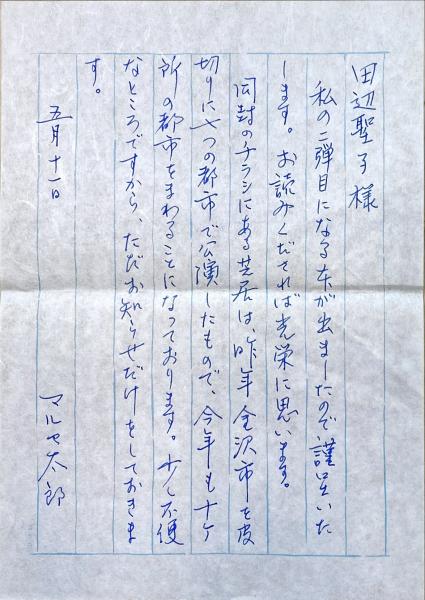 田辺聖子様
私の二弾目になる本が出ましたので謹呈いた
します。お読みくだされば光栄に思います。
同封のチラシにある芝居は、昨年金沢市を皮
切りに七つの都市で公演したもので、今年もナケ
所の都市をまわることになっております。少し不便
なところですから、ただお知らせだけをしておきま
す。
五月十一日
マルセ太郎